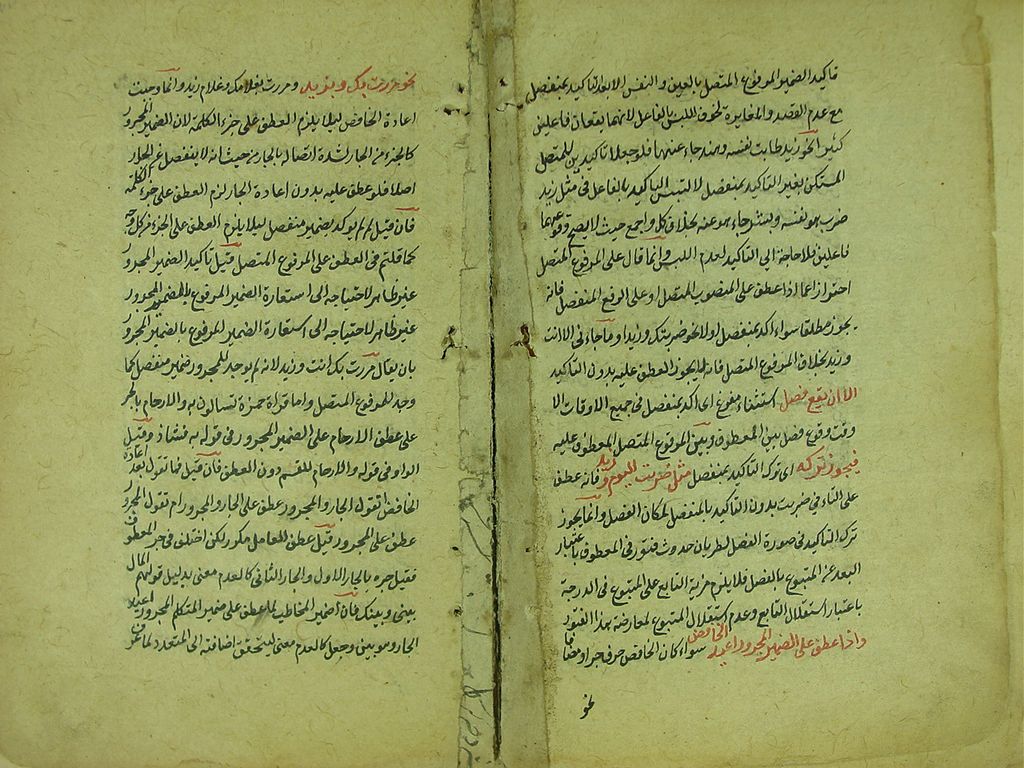 تاكيد الضمير المرفوع المتصل بالعين والنفس الا بعد التاكيد بمنفصل
مع عدم القصد والمغايرة لخوف اللبس بالفاعل لانهما يقعان فاعلين
كثيرا نحو زيد طابت نفسه وهند جاء عنها فلو جعلا تاكيدين للمتصل
المستكن بغير التاكيد بمنفصل لالتبس التاكيد بالفاعل فى مثل زيد
ضرب هو نفسه وبشر جاء هو عنه بخلاف كل واجمع حيث لا يصح وقوعهما
فاعلين فلا حاجة الى التاكيد لعدم اللبس وانما قال على المرفوع المتصل
احترازا عما اذا عطف على المنصوب المتصل او على الرفع المنفصل فانه
يجوز مطلقا سواء اكد بمنفصل او لا نحو ضربتك وزيدا وما جاءنى الا انت
وزيد بخلاف المرفوع المتصل فانه لا يجوز العطف عليه بدون التاكيد
الا ان يقع فصل استثناء مفرغ اى اكد بمنفصل فى جميع الاوقات الا
وقت وقوع فصل بين المعطوف وبين المرفوع المتصل المعطوف عليه
فيجوز تركه اى ترك التاكيد بمنفصل مثل ضربت اليوم وزيد فانه عطف
على التاء فى ضربت بدون التاكيد بالمنفصل لمكان الفصل وانما يجوز
ترك التاكيد فى صورة الفصل لطريان حدوث فتور فى المعطوف باعتبار
البعد عن المتبوع بالفصل فلا يلزم مزية التابع على المتبوع فى الدرجة
باعتبار استقلال التابع وعدم استقلال المتبوع لمعارضة هذا الفتور
واذا عطف على الضمير المجرور اعيد الخافض سواء كان الخافض حرف جر او مضافا
نحو
نحو مررت بك وبزيد ومررت بغلامك وغلام زيد وانما وجبت
اعادة الخافض ليلا يلزم العطف على جزء الكلمة لان الضمير المجرور
كالجزء من الجار لشدة اتصاله بالجار من حيث انه لا ينفصل عن الجار
اصلا فلو عطف عليه بدون اعادة الجار لزم العطف على جزء الكلمة
فان قيل لم لم يوكد بضمير منفصل ليلا يلزم العطف على الجزء من كل وجه
كما قلتم فى العطف على المرفوع المتصل قيل تاكيد الضمير المجرور
غير ظاهر لاحتياجه الى استعارة الضمير المرفوع للضمير المجرور
غير ظاهر لاحتياجه الى استعارة الضمير المرفوع بالضمير المجرور
بان يقال مررت بك انت وزيد لانه لم يوجد للمجرور ضمير منفصل كما
وجد للمرفوع المتصل واما قراة حمزة تسالون به والارحام بالجر
على عطف الارحام على الضمير المجرور فى قوله به فشاذ وقيل
الواو فى قوله والارحام للقسم دون العطف فان قيل فما تقول بعد اعادة
الخافض اتقول الجار والمجرور عطف على الجار والمجرور ام تقول المجرور
عطف على المجرور قيل عطف للعامل مكرر لكن اختلف فى جر المعطوف
فقيل جره بالجار الاول والجار الثانى كالعدم معنى بدليل قولهم المال
بينى وبينك فان ضمير المخاطب لما عطف على ضمير المتكلم المجرور اعيد
الجار وهو بين وجعل كالعدم معنى ليتحقق اضافته الى المتعدد لما عرف